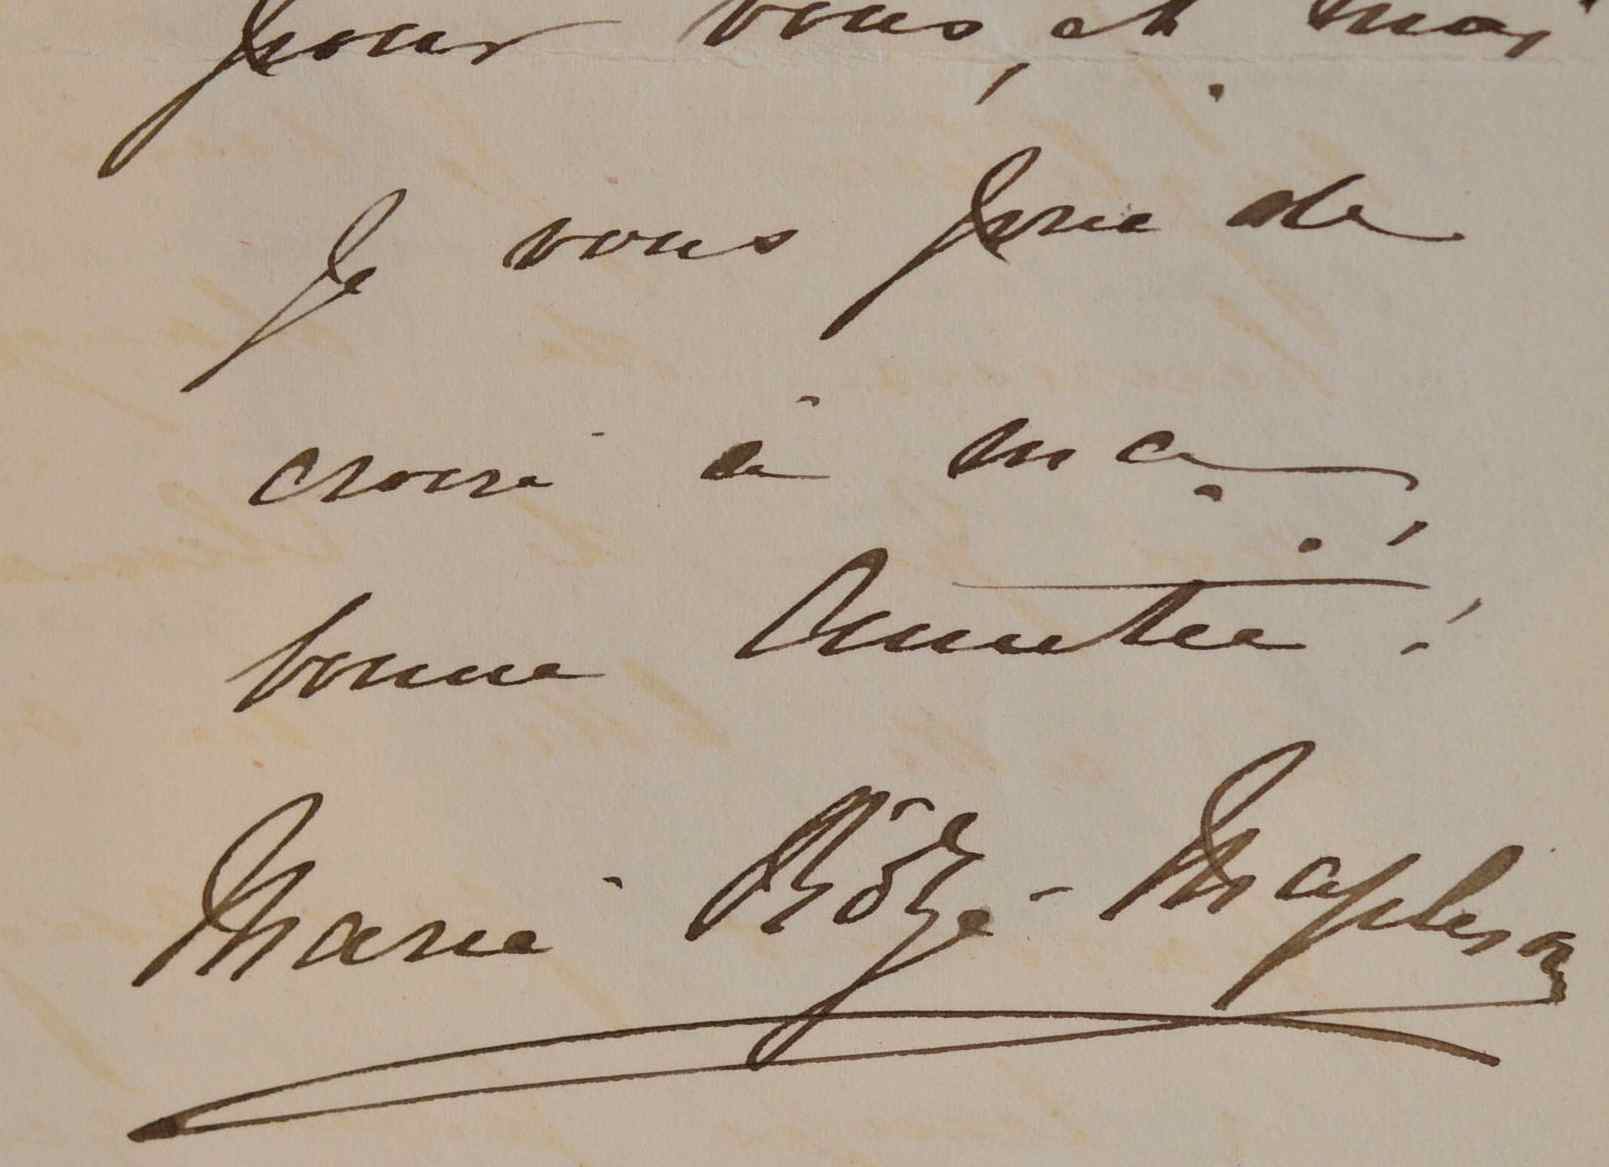 pour vous, et moi
Je vous prie de
croire à ma
bonne Amitié !
Marie Rôze-Mapleson